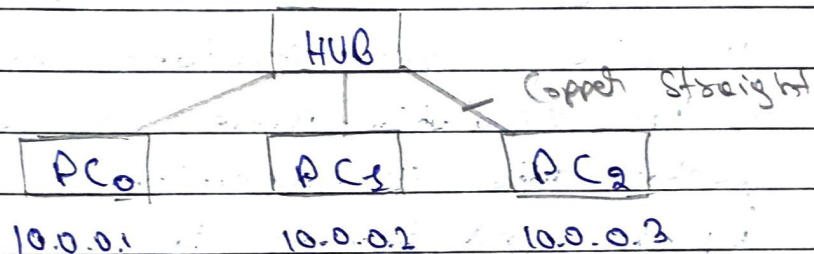 HUB
Copper Straight
PC0 PC1 PC2
10.0.0.1 10.0.0.2 10.0.0.3